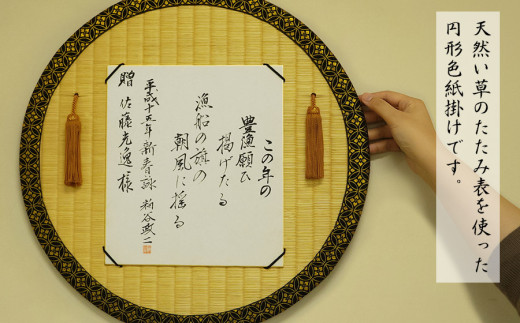 天然い草のたたみ表を使った
円形色紙掛けです。
この年の
豊漁願ひ
揚げたる
漁船の旗の
朝風に揺る
平成十五年新春詠 粕谷政二
贈 佐藤光逸様